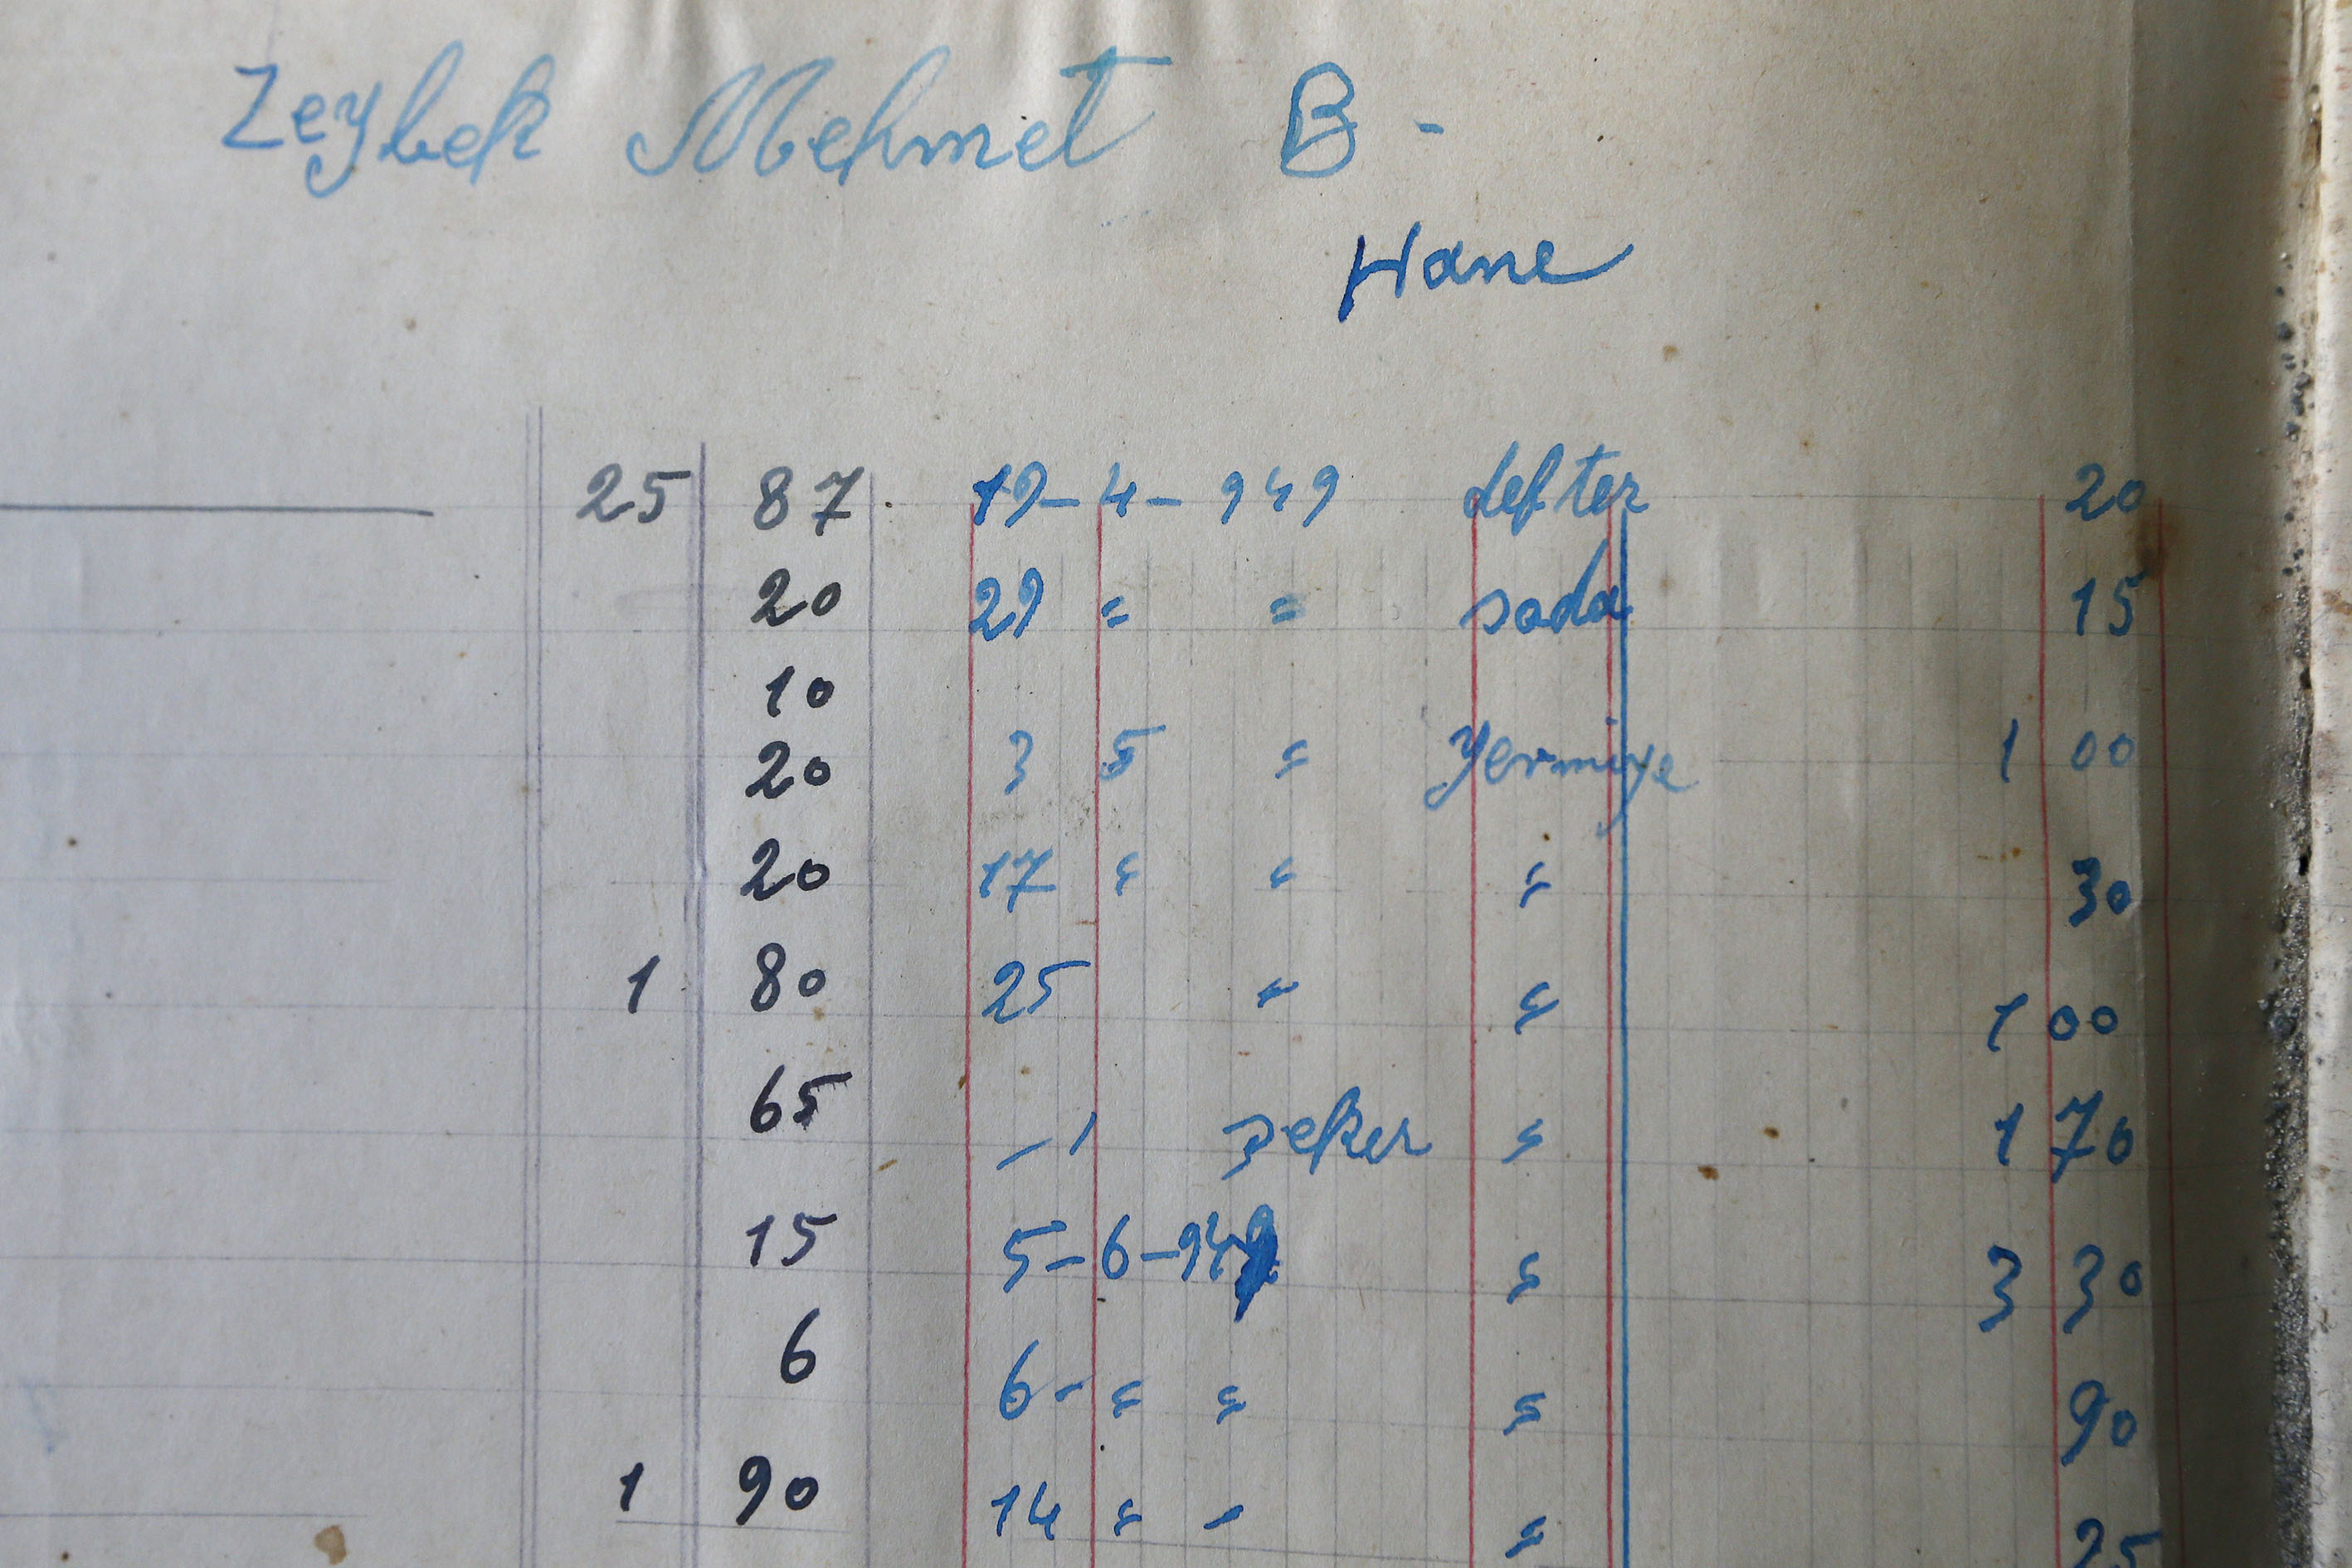 Zeybek Mehmet B -
Hane
25 87 19-4-949 defter 20
20 29 " " soda 15
10
20 3 5 " Yevmiye 1 00
20 17 " " " 30
1 80 25 " " 1 00
65 – / şeker " 1 70
15 5-6-949 " 3 30
6 6- " " " 90
1 90 14 " " " 25